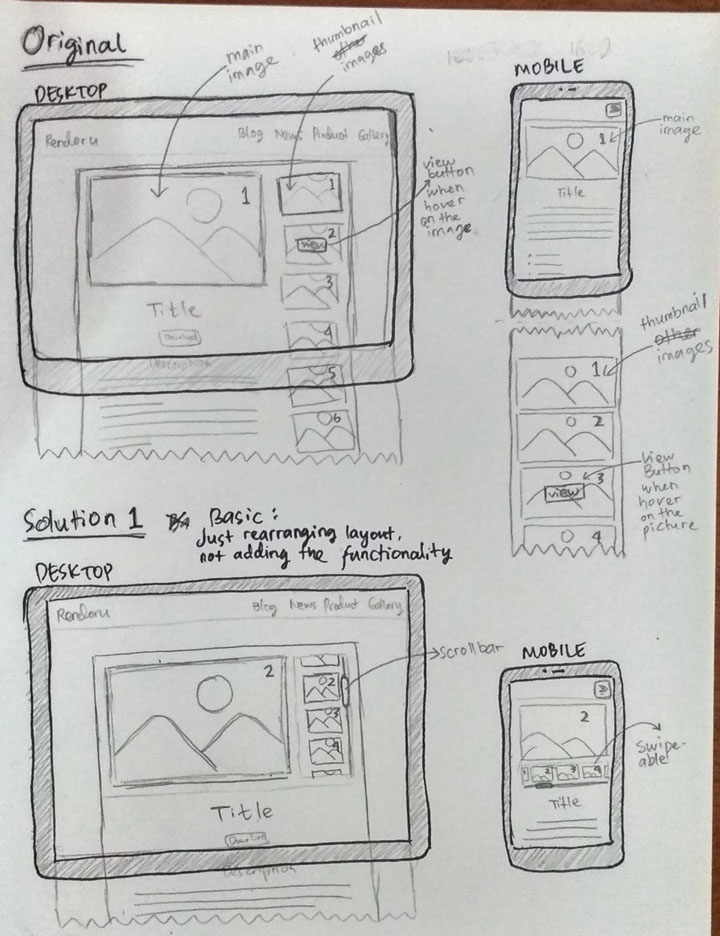 Original
main
image
thumbnail
other
images
DESKTOP
Renderu
Blog News Product Gallery
1
1
2
view
3
4
5
6
view
button
when
hover
on the
image
Title
Download
Description
MOBILE
1
main
image
Title
thumbnail
other
images
1
2
3
view
4
view
Button
when
hover
on the
picture
Solution 1
Basic:
Just rearranging layout,
not adding the functionality
DESKTOP
Renderu
Blog News Product Gallery
2
2
3
4
scrollbar
Title
Description
MOBILE
2
1 2 3 4
Swipe-
able
Title